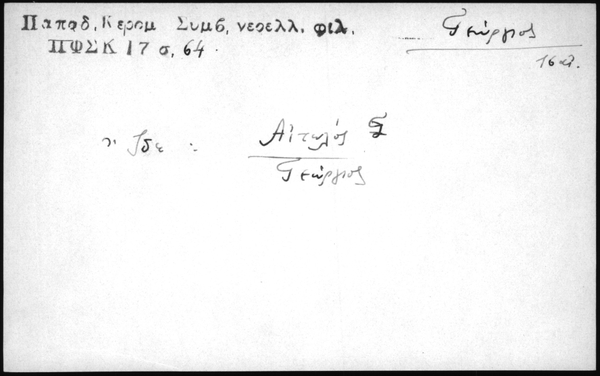 Παπαδ, Κεραμ Συμβ, νεοελλ. φιλ.
ΠΦΣΚ 17 σ, 64.
Γεώργιος
16 αἰ.
Ἴδε :
Αἰτωλός
Γεώργιος